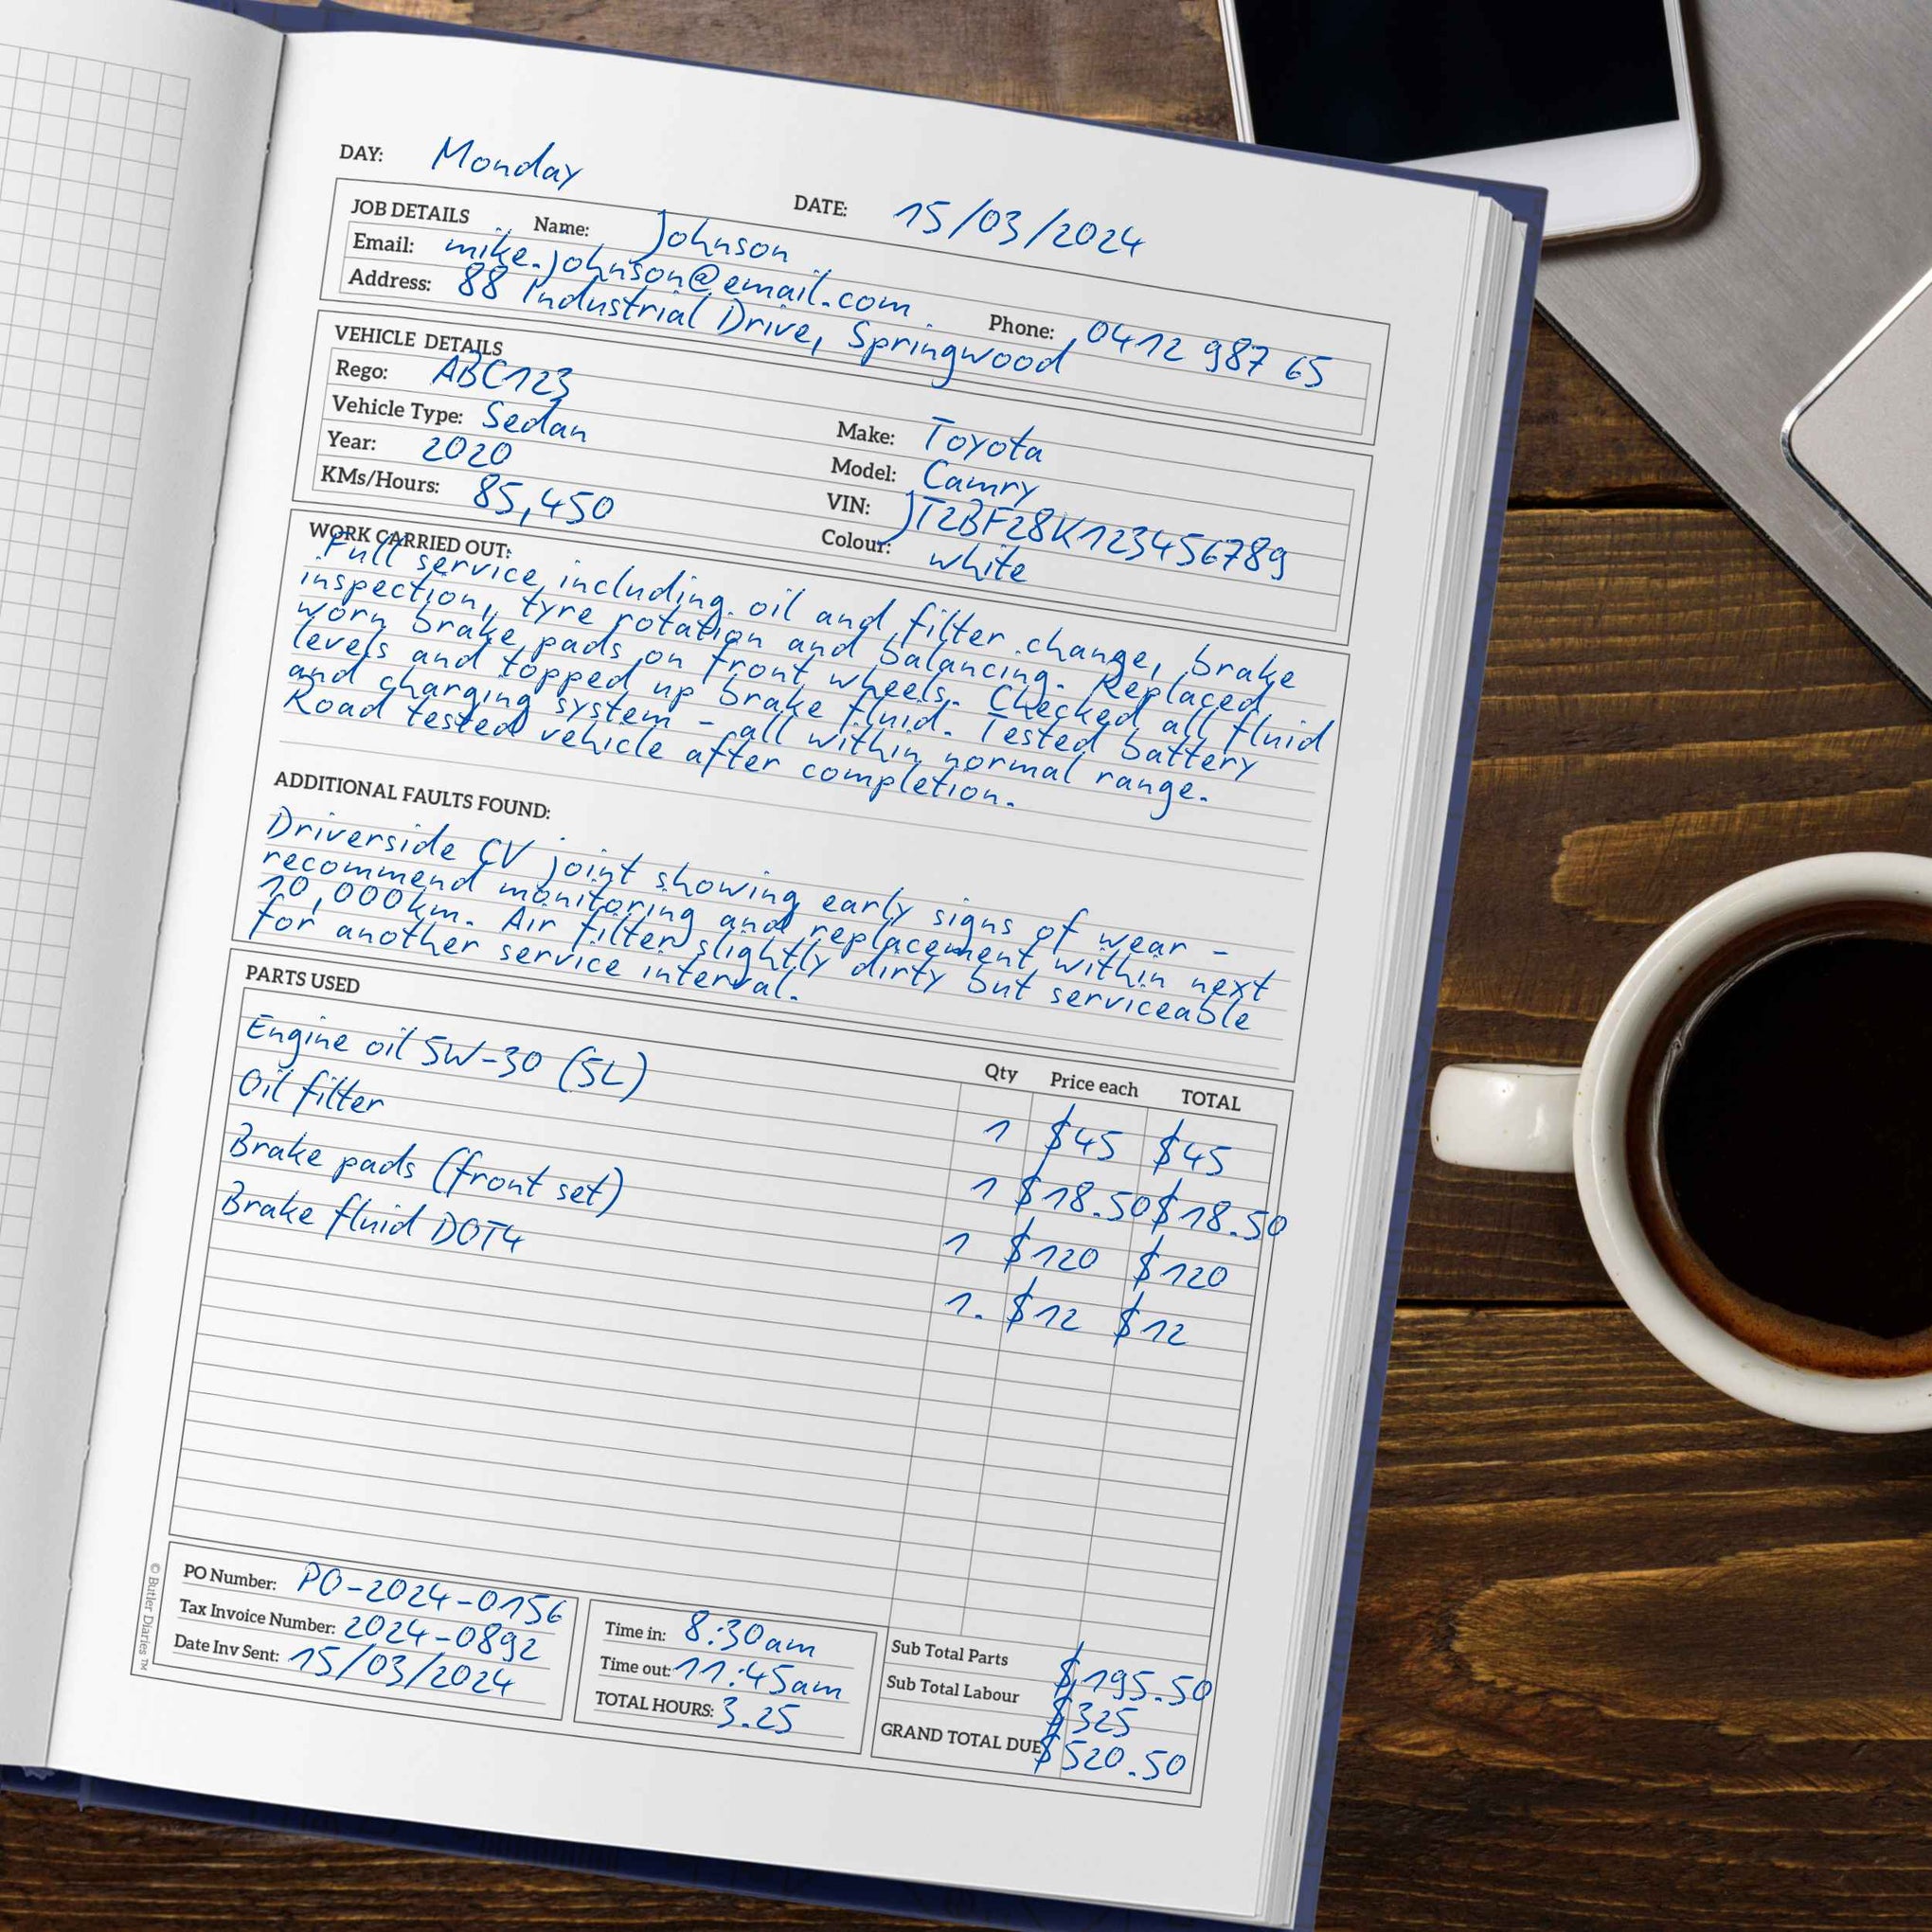 DAY: Monday DATE: 15/03/2024
JOB DETAILS Name: Johnson
Email: mike.johnson@email.com Phone: 0412 987 65
Address: 88 Industrial Drive, Springwood
VEHICLE DETAILS
Rego: ABC123 Make: Toyota
Vehicle Type: Sedan Model: Camry
Year: 2020 VIN: JT2BF28K123456789
KMs/Hours: 85,450 Colour: white
WORK CARRIED OUT:
Full service including oil and filter change, brake
inspection, tyre rotation and balancing. Replaced
worn brake pads on front wheels. Checked all fluid
levels and topped up brake fluid. Tested battery
and charging system - all within normal range.
Road tested vehicle after completion.
ADDITIONAL FAULTS FOUND:
Driverside CV joint showing early signs of wear -
recommend monitoring and replacement within next
10,000km. Air filter slightly dirty but serviceable
for another service interval.
PARTS USED Qty Price each TOTAL
Engine oil 5W-30 (5L) 1 $45 $45
Oil filter 1 $18.50 $18.50
Brake pads (front set) 1 $120 $120
Brake fluid DOT4 1. $12 $12
PO Number: PO-2024-0156
Tax Invoice Number: 2024-0892
Date Inv Sent: 15/03/2024
Time in: 8:30am
Time out: 11:45am
TOTAL HOURS: 3.25
Sub Total Parts $195.50
Sub Total Labour $325
GRAND TOTAL DUE $520.50
© Butler Diaries™